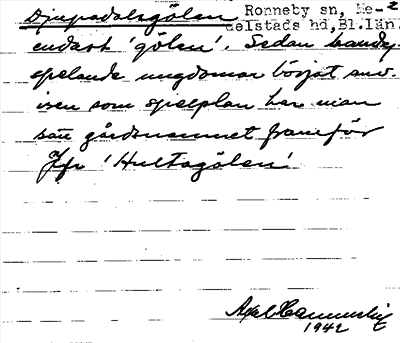 Djupadalsgölen Ronneby sn, Me-2
delstads hd, Bl.län.
endast 'gölen'. Sedan bandy-
spelande ungdomar börjat anv.
isen som spelplan har man
satt gårdsnamnet framför
Jfr 'Hultagölen'
Axel
1942